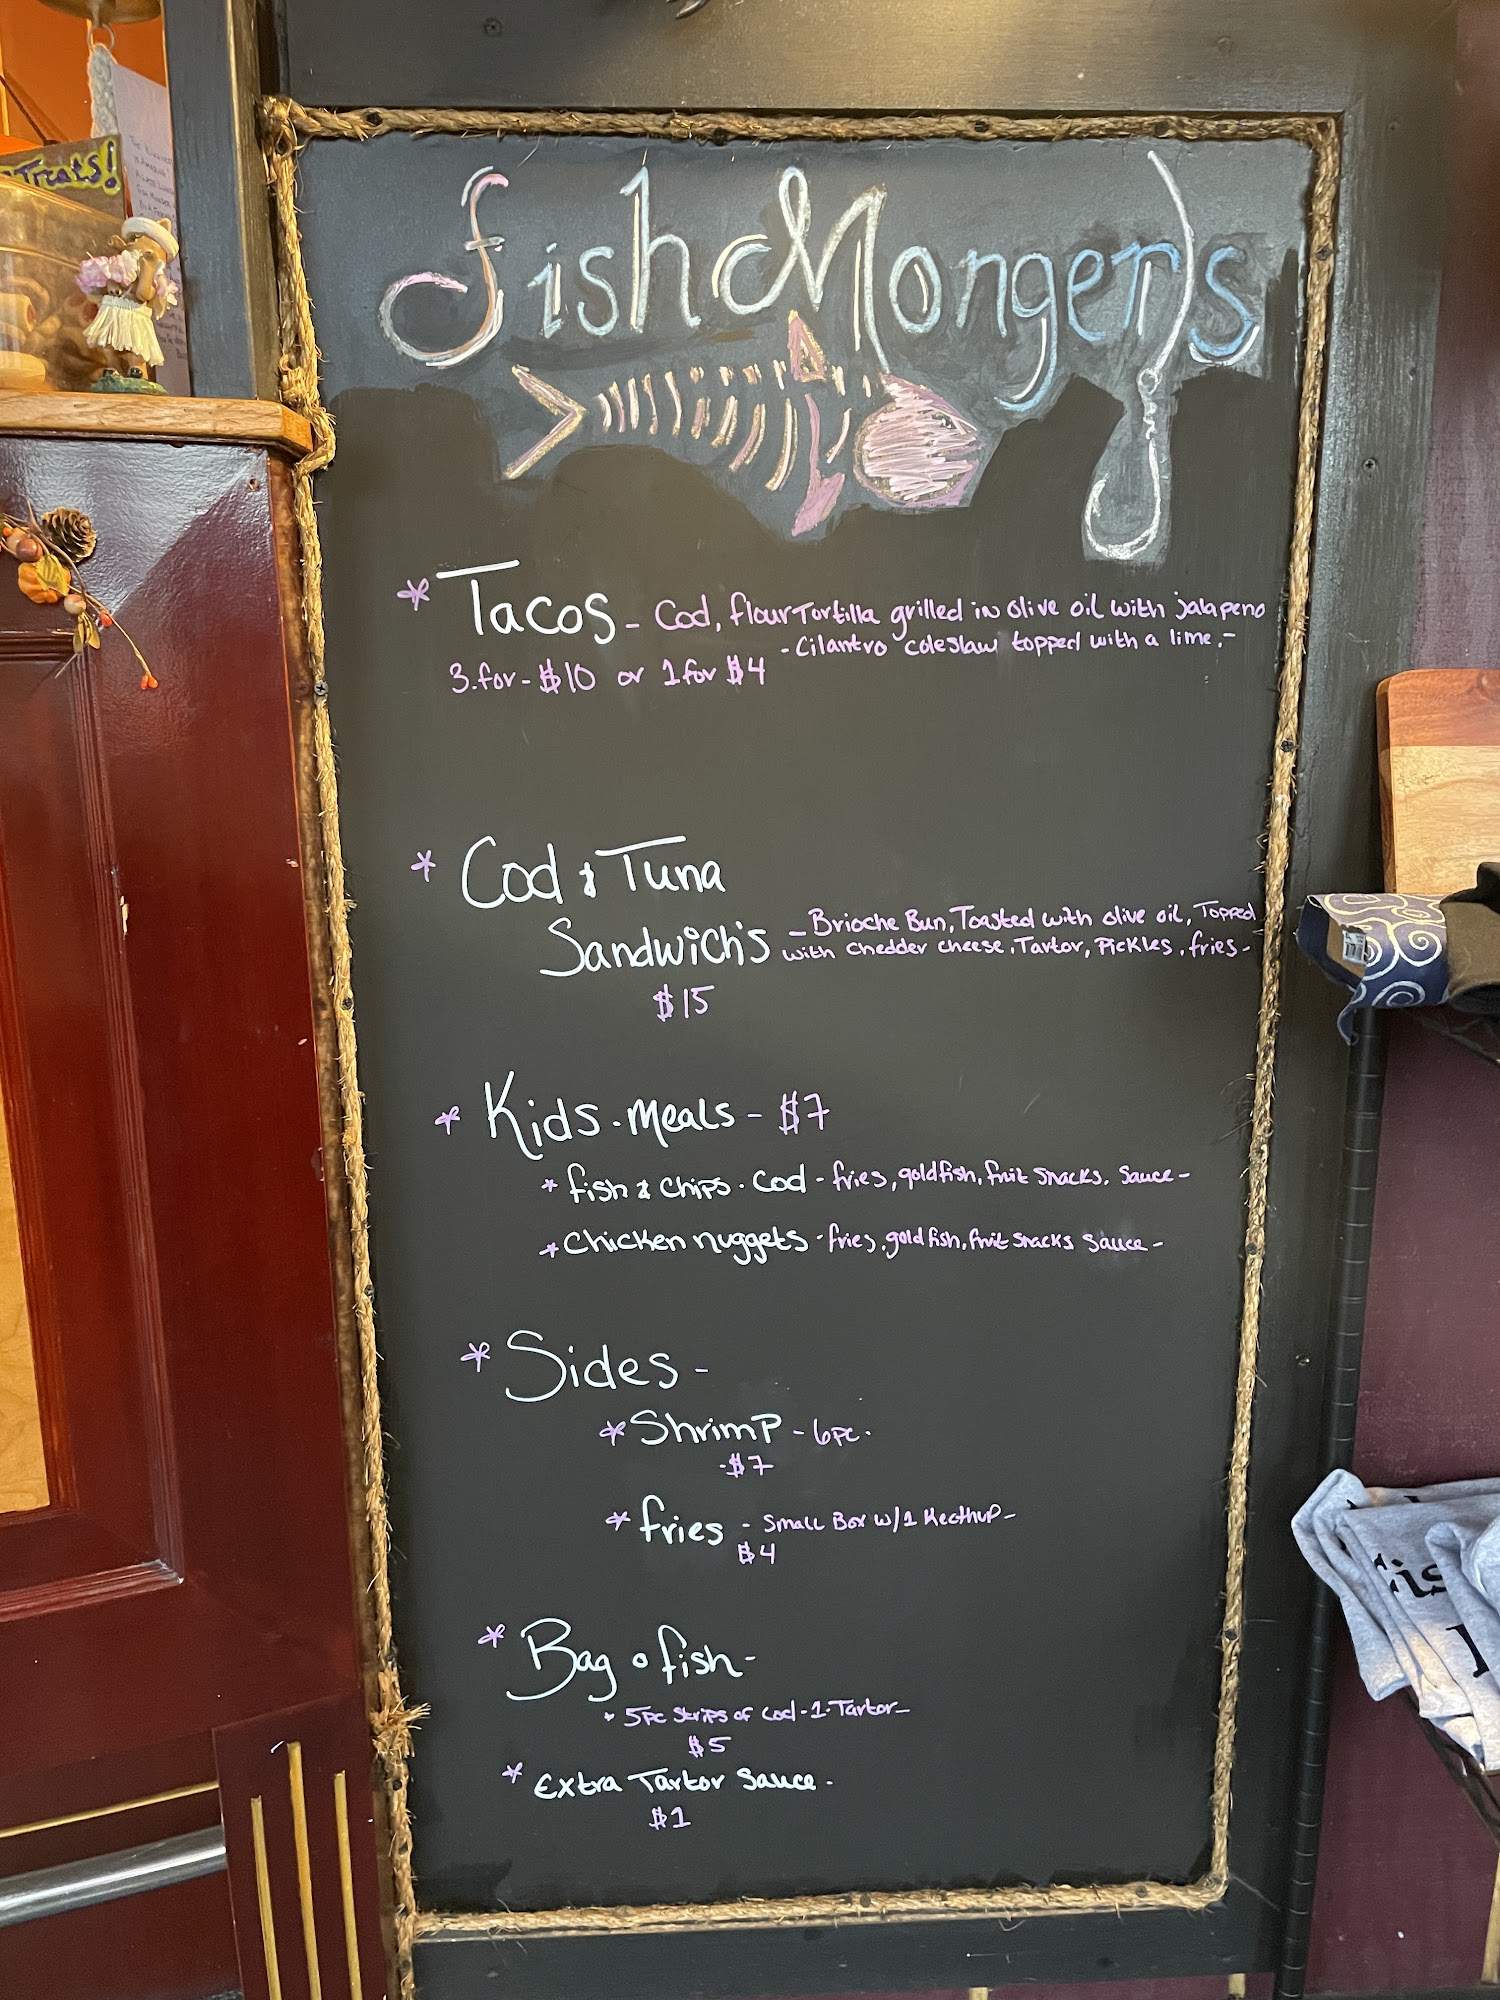 Treats!
FishMonger's
* Tacos - Cod, flour Tortilla grilled in olive oil with jalapeno
- Cilantro coleslaw topped with a lime. -
3.for - $10 or 1 for $4
* Cod & Tuna
Sandwich's - Brioche Bun, Toasted with olive oil, Topped
with chedder cheese, Tartor, Pickles, fries -
$15
* Kids. Meals - $7
* fish & chips. Cod - fries, goldfish, fruit snacks, sauce -
* Chicken nuggets - fries, goldfish, fruit snacks sauce -
* Sides -
* Shrimp - 6pc.
- $7
* fries - Small Box w/1 Kecthup -
$4
* Bag o fish -
* 5pc strips of cod - 1. Tartor -
$5
* Extra Tartor Sauce -
$1